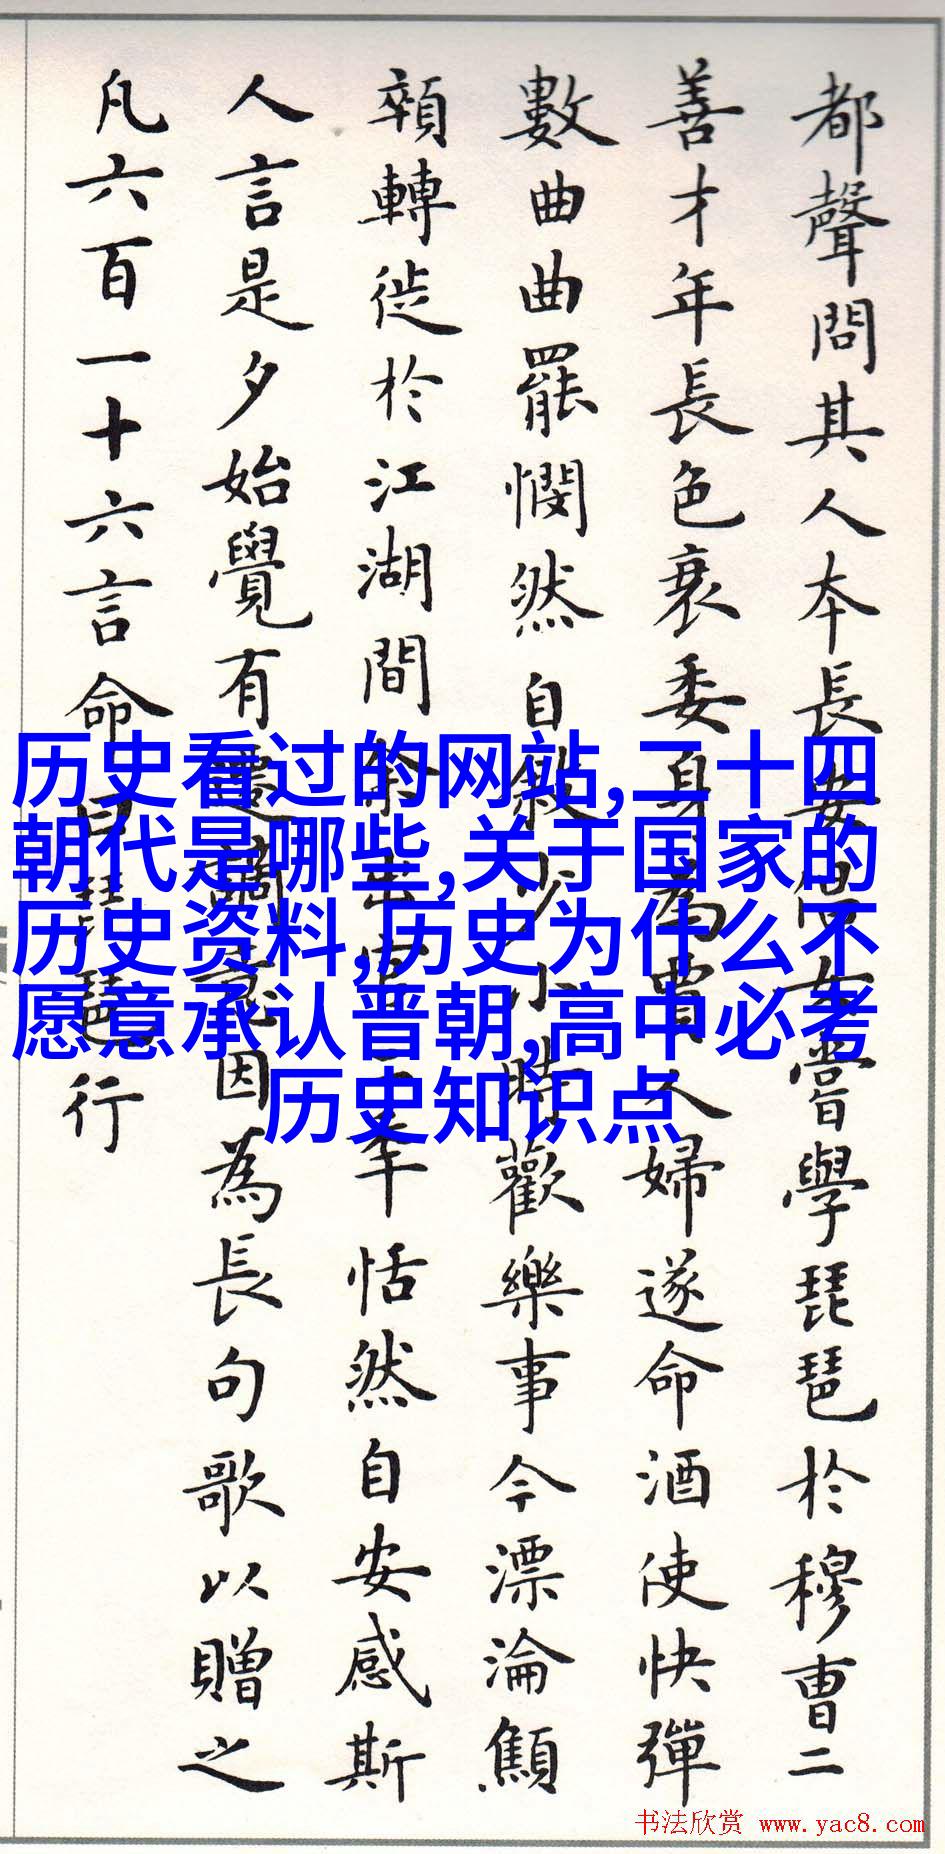 都聲問其人本長安倡女嘗學琵琶於穆曹二
善才年長色衰委身為賈人婦遂命酒使快彈
數曲曲罷憫然自敘少小時歡樂事今漂淪顦
顇轉徙於江湖間余出官二年恬然自安感斯
人言是夕始覺有遷謫意因為長句歌以贈之
凡六百一十六言命曰琵琶行
历史看过的网站,二十四
朝代是哪些,关于国家的
历史资料,历史为什么不
愿意承认晋朝,高中必考
历史知识点
书法欣赏 www.yac8.com